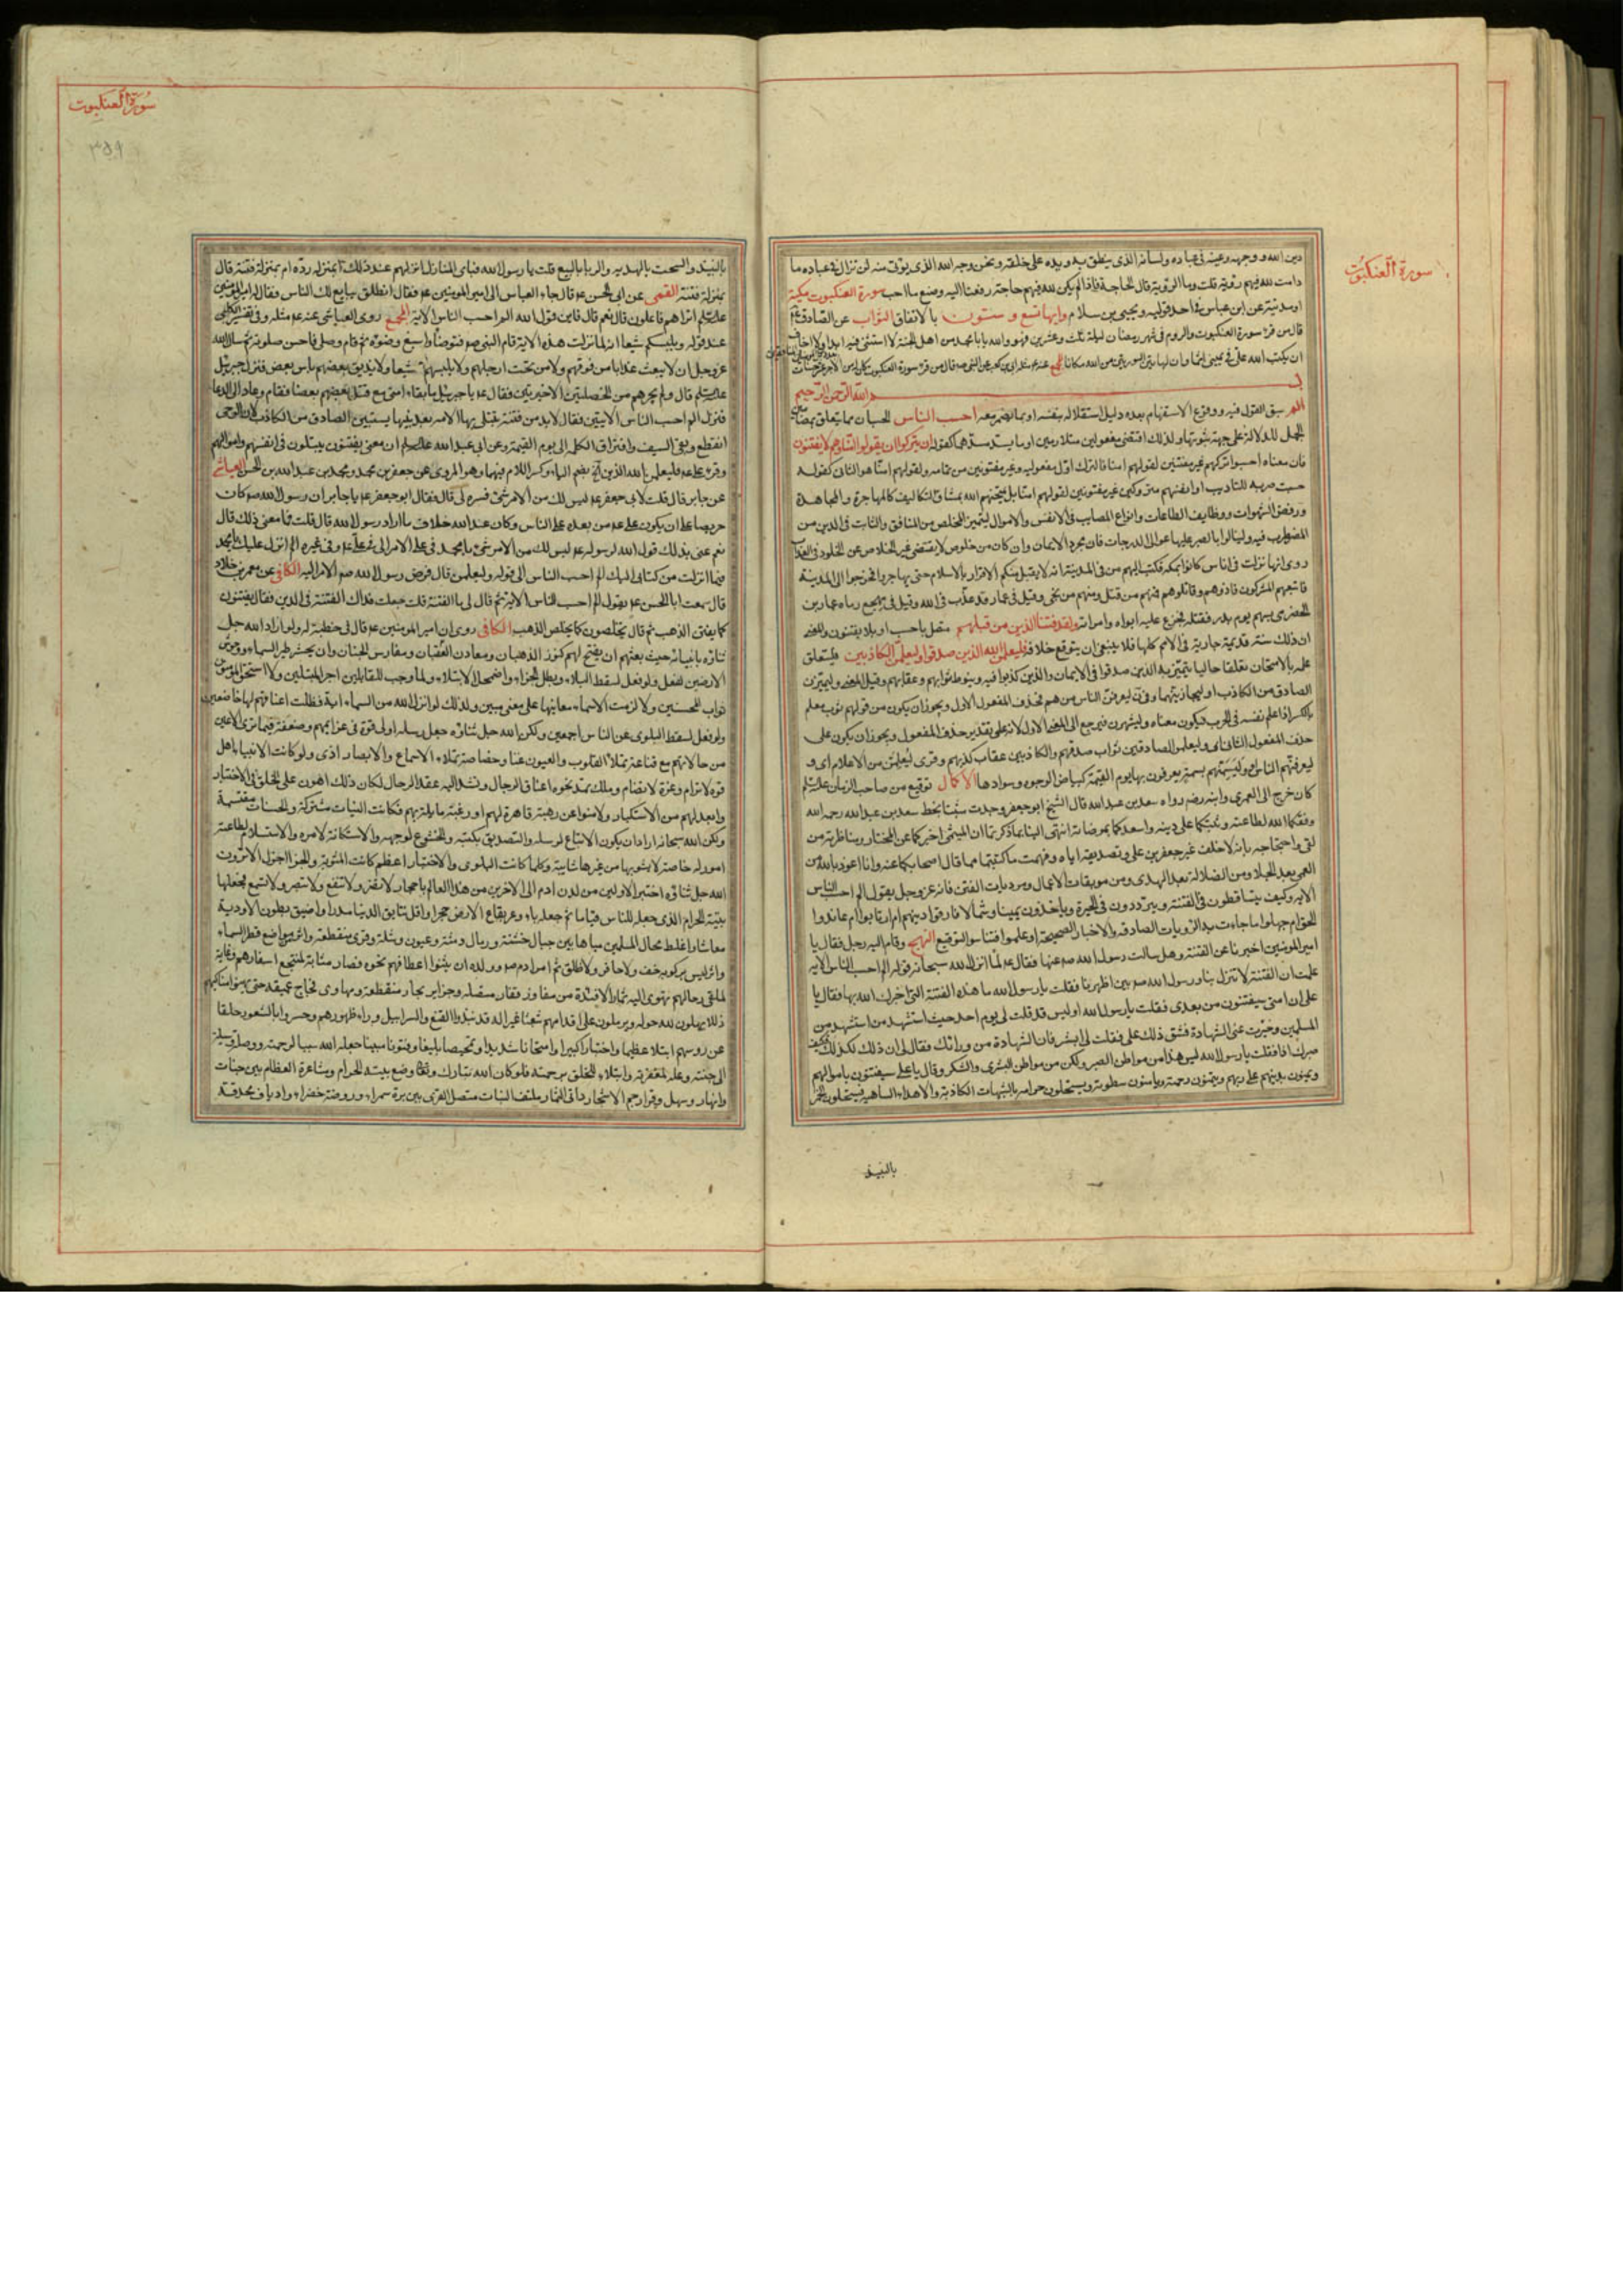 سورة العنكبوت
دين الله ووجهه وعينه في عباده ولسانه الذي ينطق به ويده على خلقه ونحن وجه الله الذي يؤتى منه لن نزال في عباده ما
دامت لله فيهم روية قلت وما الروية قال الحاجة فاذا لم يكن لله فيهم حاجة رفعنا اليه وصنع ما احب سورة العنكبوت مكية
او مدنية عن ابن عباس في احد قوليه ويحيى بن سلام وايها تسع و ستون بالاتفاق الثواب عن الصادق ع
قال من قرء سورة العنكبوت والروم في شهر رمضان ليلة ثلث وعشرين فهو والله يا با محمد من اهل الجنة لا استثنى فيه ابدا ولا اخاف
ان يكتب الله على في يميني اثما وان لهاتين السورتين من الله مكانا
الله الرحمن الرحيم
الم سبق القول فيه ووقوع الاستفهام بعده دليل استقلاله بنفسه او بما يضمر معه احسب الناس الحسبان مما يتعلق بمضامين
الجمل للدلالة على جهة ثبوتها ولذلك اقتضى مفعولين متلازمين او ما يسد مسدهما كقوله ان يتركوا ان يقولوا امنا وهم لا يفتنون
فان معناه احسبوا تركهم غير مفتنين لقولهم امنا فالترك اول مفعوليه وغير مفتونين من تمامه ولقولهم امنا هو الثاني كقولك
حسبت ضربه للتاديب او انفسهم متروكين غير مفتونين لقولهم امنا بل يمتحنهم الله بمشاق التكاليف كالمهاجرة والمجاهدة
ورفض الشهوات ووظايف الطاعات وانواع المصايب في الانفس والاموال ليتميز المخلص من المنافق والثابت في الدين من
المضطرب فيه ولينالوا بالصبر عليها عوالى الدرجات فان مجرد الايمان وان كان من خلوص لا يقتضى غير الخلاص من الخلود في العذاب
روى انها نزلت في اناس كانوا بمكة فكتب اليهم من في المدينة انه لا يقبل منكم الاقرار بالاسلام حتى يهاجروا فخرجوا الى المدينة
فاتبعهم المشركون فاذوهم وقاتلوهم فمنهم من قتل ومنهم من نجى وقيل في عمار قد عذب في الله وقيل في مهجع رماه عمار بن
الحضرمى بسهم يوم بدر فقتله فجزع عليه ابواه وامراته ولقد فتنا الذين من قبلهم متصل باحسب او بلا يفتنون والمعنى
ان ذلك سنة قديمة جارية في الامم كلها فلا ينبغى ان يتوقع خلافه فليعلمن الله الذين صدقوا وليعلمن الكاذبين فليتعلق
علمه بالامتحان تعلقا حاليا يتميز به الذين صدقوا في الايمان والذين كذبوا فيه وينوط ثوابهم وعقابهم وقيل المعنى وليميزن
حذف المفعول الثاني اى وليعلمن الصادقين ثواب صدقهم والكاذبين عقاب كذبهم وقرى ليعلمن من الاعلام اى و
ليعرفنهم الناس او ليسمنهم بسمة يعرفون بها يوم القيمة كبياض الوجوه وسوادها الاكمال توقيع من صاحب الزمان عليه السلم
كان خرج الى العمرى وابنه رضى رواه سعد بن عبد الله قال الشيخ ابو جعفر وجدت مثبتا بخط سعد بن عبد الله رحمه الله
وفقكما الله لطاعته وثبتكما على دينه واسعدكما بمرضاته انتهى الينا ما ذكرتما ان الميثمى اخبركما عن المختار ومناظرته من
لقى واحتجاجه بانه لا خلف غير جعفر بن على وتصديقه اياه وفهمت ما كتبتما به مما قال اصحابكما عنه وانا اعوذ بالله من
العمى بعد الجلاء ومن الضلالة بعد الهدى ومن موبقات الاعمال ومرديات الفتن فانه عز وجل يقول الم احسب الناس
الاية وكيف يتساقطون في الفتنة ويترددون في الحيرة وياخذون يمينا وشمالا فارقوا دينهم ام ارتابوا ام عاندوا
الحق ام جهلوا ما جاءت به الروايات الصادقة والاخبار الصحيحة او علموا فتناسوا التوقيع النهج وقام اليه رجل فقال يا
امير المومنين اخبرنا عن الفتنة وهل سالت رسول الله ص عنها فقال ع لما انزل الله سبحانه قوله الم احسب الناس الاية
علمت ان الفتنة لا تنزل بنا ورسول الله ص بين اظهرنا فقلت يا رسول الله ما هذه الفتنة التي اخبرك الله بها فقال يا
على ان امتى سيفتنون من بعدى فقلت يا رسول الله اوليس قد قلت لى يوم احد حيث استشهد من استشهد من
المسلمين وحيزت عنى الشهادة فشق ذلك على فقلت لى ابشر فان الشهادة من ورائك فقال لى ان ذلك لكذلك فكيف
صبرك اذا فقلت يا رسول الله ليس هذا من مواطن الصبر ولكن من مواطن البشرى والشكر وقال يا على سيفتنون باموالهم
ويمنون بدينهم على ربهم ويتمنون رحمته ويامنون سطوته ويستحلون حرامه بالشبهات الكاذبة والاهواء الساهية فيستحلون الخمر
بالنبيذ
سورة العنكبوت
٣٥٩
بالنبيذ والسحت بالهدية والربا بالبيع قلت يا رسول الله فباى المنازل انزلهم عند ذلك ابمنزلة ردة ام بمنزلة فتنة قال
بمنزلة فتنة القمى عن ابى الحسن ع قال جاء العباس الى امير المومنين ع فقال انطلق يبايع لك الناس فقال امير المومنين
عليه السلم اتراهم فاعلون قال نعم قال فاين قول الله الم احسب الناس الاية المجمع روى العياشى عنه ع مثله وفي تفسير الكلبى
عند قوله ويلبسكم شيعا انه لما نزلت هذه الاية قام النبى ص فتوضأ واسبغ وضوئه ثم قام وصلى فاحسن صلوته ثم سال الله
عز وجل ان لا يبعث عذابا من فوقهم ولا من تحت ارجلهم ولا يلبسهم شيعا ولا يذيق بعضهم باس بعض فنزل جبرئيل
عليه السلم قال ولم يجرهم من الخصلتين الاخيرتين فقال ع يا جبرئيل ما بقاء امتى مع قتل بعضهم بعضا فقام وعاد الى الدعا
فنزل الم احسب الناس الايتين فقال لابد من فتنة تبتلى بها الامه بعد نبيها ليستبين الصادق من الكاذب لان الوحى
انقطع وبقى السيف وافتراق الكلمة الى يوم القيمة وعن ابى عبد الله عليه السلم ان معنى يفتنون يبتلون في انفسهم واموالهم
وقرء على ع فليعلمن الله الذين اه بضم الياء وكسر اللام فيهما وهو المروى عن جعفر بن محمد ومحمد بن عبد الله بن الحسن العياشى
عن جابر قال قلت لابى جعفر ع ليس لك من الامر شئ فسره لى قال فقال ابو جعفر ع يا جابر ان رسول الله ص كان
حريصا على ان يكون على ع من بعده على الناس وكان عند الله خلاف ما اراد رسول الله قال قلت فما معنى ذلك قال
نعم عنى بذلك قول الله لرسوله ع ليس لك من الامر شئ يا محمد في على الامر الى في على ع وفي غيره الم انزل عليك يا محمد
فيما انزلت من كتابى اليك الم احسب الناس الى قوله وليعلمن قال فوض رسول الله ص الامر اليه الكافى عن معمر بن خلاد
قال سمعت ابا الحسن ع يقول الم احسب الناس الاية ثم قال لى ما الفتنة قلت جعلت فداك الفتنة في الدين فقال يفتنون
كما يفتن الذهب ثم قال يخلصون كما يخلص الذهب الكافى روى ان امير المومنين ع قال في خطبة له ولو اراد الله جل
ثناؤه بانبيائه حيث بعثهم ان يفتح لهم كنوز الذهبان ومعادن العقيان ومغارس الجنان وان يحشر طير السماء ووحش
الارضين لفعل ولو فعل لسقط البلاء وبطل الجزاء واضمحل الابتلاء ولما وجب للقابلين اجر المبتلين ولا استحق المومنون
ثواب المحسنين ولا لزمت الاسماء معانيها على معنى مبين ولذلك لو انزل الله من السماء اية فظلت اعناقهم لها خاضعين
ولو فعل لسقط البلوى عن الناس اجمعين ولكن الله جل ثناؤه جعل رسله اولى قوة في عزائمهم وضعفة فيما ترى الاعين
من حالاتهم مع قناعة تملا القلوب والعيون غنا وخصاصة تملاء الاسماع والابصار اذى ولو كانت الانبيا اهل
قوة لا ترام وعزة لا تضام وملك تمد نحوه اعناق الرجال وتشد اليه عقد الرحال لكان ذلك اهون على الخلق في الاختبار
وابعد لهم من الاستكبار ولامنوا عن رهبة قاهرة لهم او رغبة مايلة بهم فكانت النيات مشتركة والحسنات مقتسمة
ولكن الله سبحانه اراد ان يكون الاتباع لرسله والتصديق بكتبه والخشوع لوجهه والاستكانة لامره والاستسلام لطاعته
امورا له خاصة لا يشوبها من غيرها شايبة وكلما كانت البلوى والاختبار اعظم كانت المثوبة والجزا اجزل الا ترون
الله جل ثناؤه اختبر الاولين من لدن ادم الى الاخرين من هذا العالم باحجار لا تضر ولا تنفع ولا تبصر ولا تسمع فجعلها
بيته الحرام الذى جعله للناس قياما ثم جعله باوعر بقاع الارض حجرا واقل نتايق الدنيا مدرا واضيق بطون الاودية
معاشا واغلظ محال المسلمين مياها بين جبال خشنة ورمال دمثة وعيون وشلة وقرى منقطعة واثر من مواضع قطر السماء
واثر ليس يزكو به خف ولا حافر ولا ظلف ثم امر ادم ص وولده ان يثنوا اعطافهم نحوه فصار مثابة لمنتجع اسفارهم وغاية
لملقى رحالهم تهوى اليه ثمار الافئدة من مفاوز قفار متصلة وجزاير بحار منقطعة ومهاوى فجاج عميقة حتى يهزوا مناكبهم
ذللا يهلون لله حوله ويرملون على اقدامهم شعثا غبرا له قد نبذوا القنع والسرابيل وراء ظهورهم وحسروا بالشعور حلقا
عن روسهم ابتلاء عظيما واختبارا كبيرا وامتحانا شديدا وتمحيصا بليغا وقنوتا مبينا جعله الله سببا لرحمته ووصلة ووسيلة
الى جنته وعلة لمغفرته وابتلاء للخلق برحمته فلو كان الله تبارك وتعالى وضع بيته الحرام ومشاعره العظام بين جنات
وانهار وسهل وقرار جم الاشجار دانى الثمار ملتف النبات متصل القرى بين برة سمراء وروضة خضراء وارياف محدقة